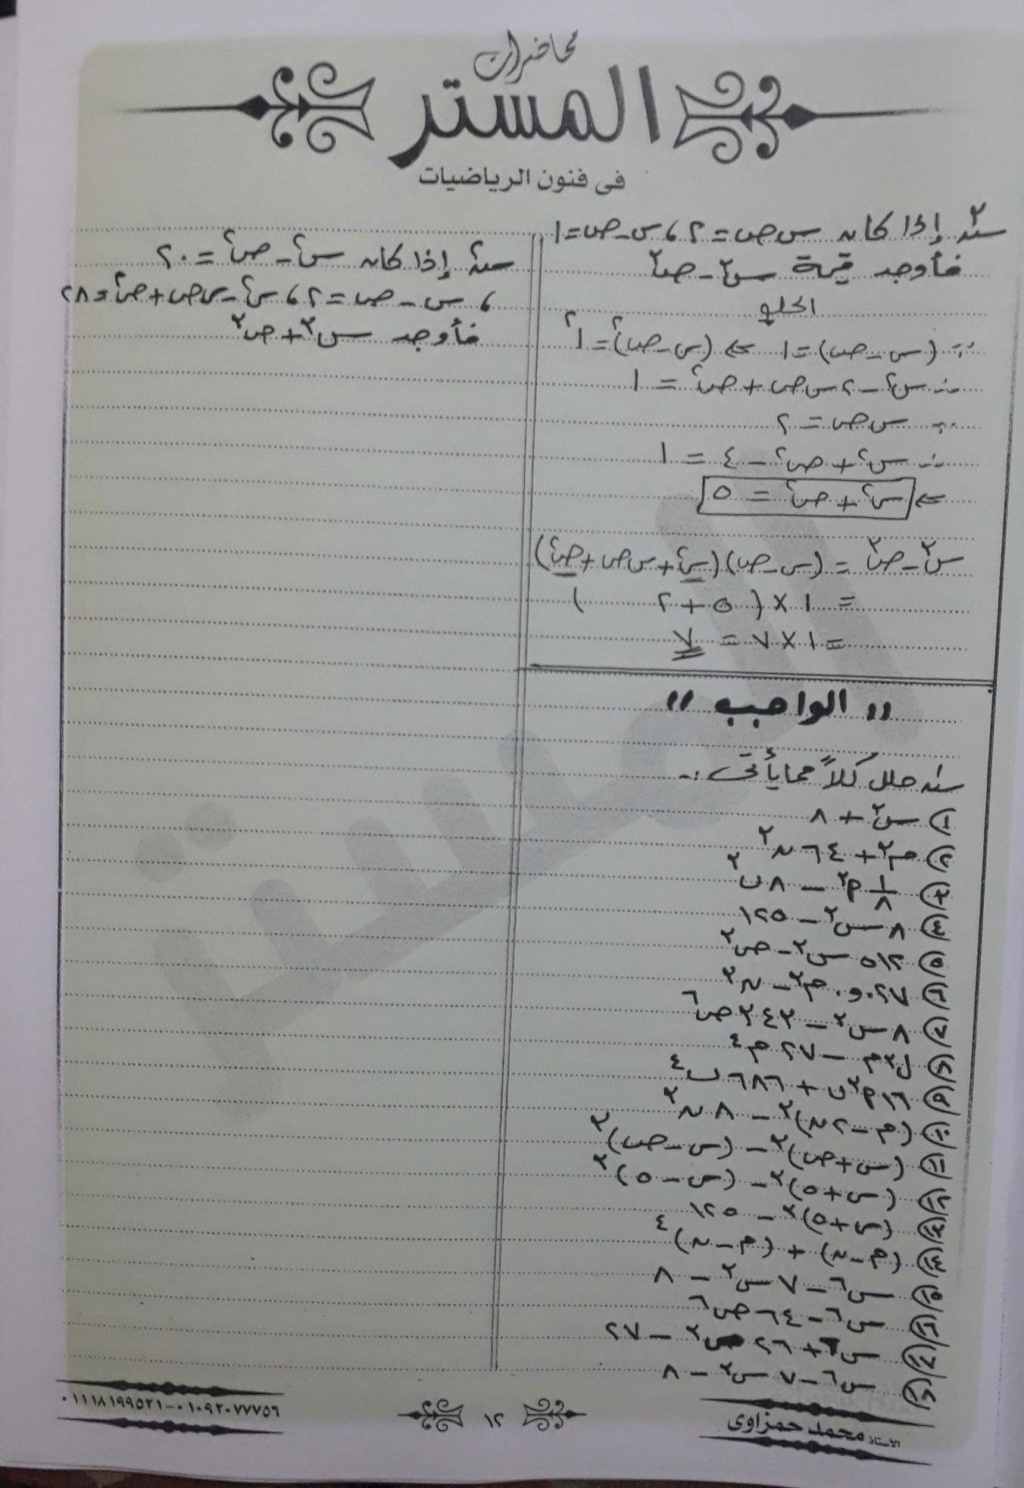 محاضرات
المستر
فى فنون الرياضيات
إذا كان س ص = ٢ ، س - ص = ١
فأوجد قيمة س٣ - ص٣
الحل
∵ (س - ص) = ١ ⇐ (س - ص)٢ = ١٢
∴ س٢ - ٢ س ص + ص٢ = ١
∵ س ص = ٢
∴ س٢ + ص٢ - ٤ = ١
⇐ س٢ + ص٢ = ٥
س٣ - ص٣ = (س - ص)(س٢ + س ص + ص٢)
= ١ × ( ٥ + ٢ )
= ١ × ٧ = ٧
" الواجب "
س١ حلل كلاً مما يأتى :-
١ س٣ + ٨
٢ م٣ + ٦٤ ن٣
٣ ١/٨ م٣ - ٨ ب٣
٤ ٨ س٣ - ١٢٥
٥ ٢١٥ س٣ - ص٣
٦ ٠٫٠٢٧ م٣ - ن٣
٧ ٨ س٣ - ٣٤٣ ص٦
٨ ل٣ م - ٢٧ م٤
٩ ١٦ م٣ ب + ٦٨٦ ب٤
١٠ (م - ٢ ن)٣ - ٨ ن٣
١١ (س + ص)٣ - (س - ص)٣
١٢ (س + ٥)٣ - (س - ٥)٣
١٣ (س + ٥)٣ - ١٢٥
١٤ (م - ن) + (م - ن)٤
١٥ س٦ - ٧ س٣ - ٨
١٦ س٦ - ٦٤ ص٦
١٧ س٦ + ٢٦ س٣ - ٢٧
١٨ س٦ - ٧ س٣ - ٨
إذا كان س٢ - ص٢ = ٢٠
، س - ص = ٢ ، س٢ - س ص + ص٢ = ٢٨
فأوجد س٣ + ص٣
الأستاذ محمد حمزاوى
١٢
٠١١١٨١٩٩٥٢١-٠١٠٩٢٠٧٧٧٥٦